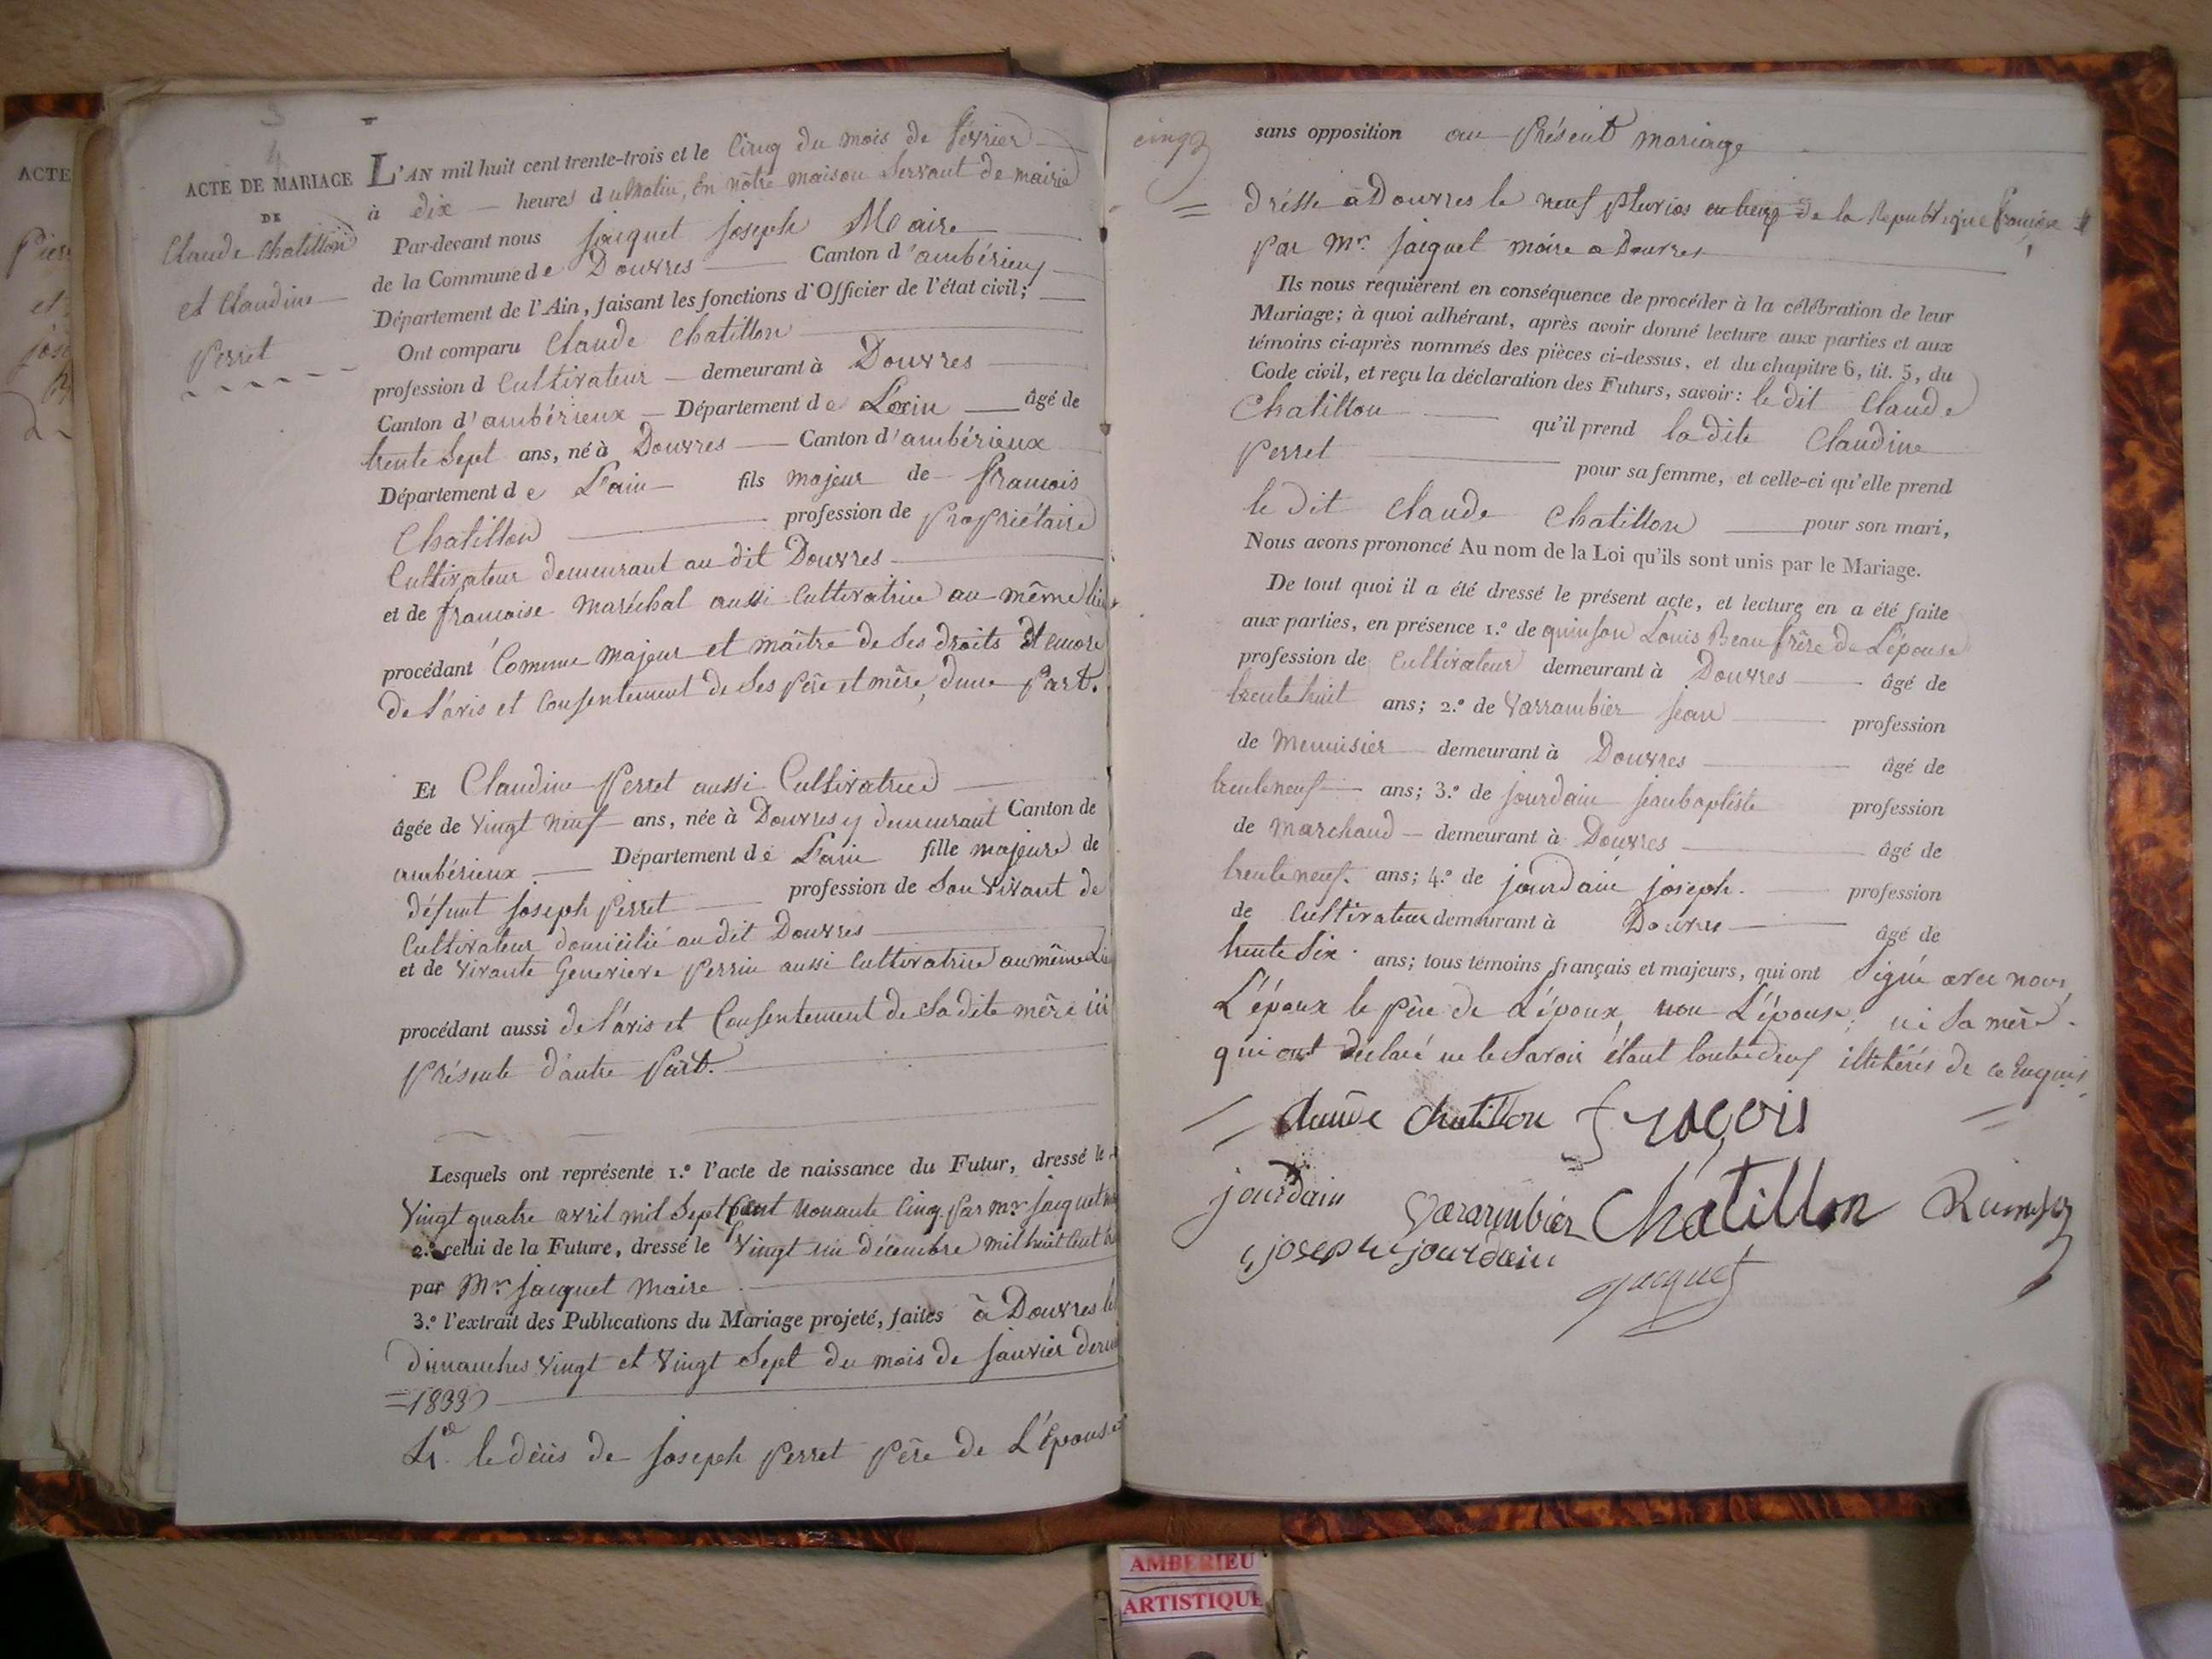 ACTE
ACTE DE MARIAGE
DE
Claude Chatillon
et Claudine
Perret
L'AN mil huit cent trente-trois et le Cinq du mois de février
à dix heures du matin, en nôtre maison servant de mairie
Par-devant nous jacquet joseph Maire
de la Commune de Douvres Canton d'ambérieux
Département de l'Ain, faisant les fonctions d'Officier de l'état civil;
Ont comparu Claude Chatillon
profession d Cultivateur demeurant à Douvres
Canton d'ambérieux Département de Lain âgé de
trente sept ans, né à Douvres Canton d'ambérieux
Département de Lain fils majeur de francois
Chatillon profession de propriétaire
Cultivateur demeurant au dit Douvres
et de francoise Maréchal aussi Cultivatrice au même lieu
procédant Comme majeur et maître de ses droits et encore
de l'avis et Consentement de ses père et mère, d'une Part.
Et Claudine Perret aussi Cultivatrice
âgée de vingt neuf ans, née à Douvres y demeurant Canton de
ambérieux Département de Lain fille majeure de
défunt joseph Perret profession de Son vivant de
Cultivateur domicilié audit Douvres
et de vivante Genevieve Perrin aussi Cultivatrice au même Lieu
procédant aussi de l'avis et Consentement de Sa dite mère ici
Présente d'autre Part.
Lesquels ont représenté 1.º l'acte de naissance du Futur, dressé le
vingt quatre avril mil Sept Cent nonante Cinq. Par mr jacquet
2.º celui de la Future, dressé le vingt un décembre mil huit Cent
par Mr jacquet Maire
3.º l'extrait des Publications du Mariage projeté, faites à Douvres
dimanches vingt et vingt Sept du mois de janvier
=1833
4.º le décès de joseph Perret Père de L'épouse
cinq
sans opposition au Présent mariage
dréssé à Douvres le neuf Pluvios de la Republique
par Mr. jacquet maire a Douvres
Ils nous requièrent en conséquence de procéder à la célébration de leur
Mariage; à quoi adhérant, après avoir donné lecture aux parties et aux
témoins ci-après nommés des pièces ci-dessus, et du chapitre 6, tit. 5, du
Code civil, et reçu la déclaration des Futurs, savoir: le dit Claude
Chatillon qu'il prend la dite Claudine
Perret pour sa femme, et celle-ci qu'elle prend
le dit Claude Chatillon pour son mari,
Nous avons prononcé Au nom de la Loi qu'ils sont unis par le Mariage.
De tout quoi il a été dressé le présent acte, et lecture en a été faite
aux parties, en présence 1.º de quinson Louis Beau frère de L'épouse
profession de Cultivateur demeurant à Douvres âgé de
trente huit ans; 2.º de Varrambier jean profession
de Menuisier demeurant à Douvres âgé de
trente neuf ans; 3.º de jourdain jeanbaptiste profession
de Marchand demeurant à Douvres âgé de
trente neuf. ans; 4.º de jourdain joseph. profession
de Cultivateur demeurant à Douvres âgé de
trente Six ans; tous témoins français et majeurs, qui ont Signé avec nous,
L'époux le père de L'époux, non L'épouse, ni Sa mère.
qui ont déclaré ne le Savoir étant toutes deux illitérés de ce Enquis.
Claude Chatillon fracois
jourdain Vararmbier Chatillon
joseph jourdain
jacquet
AMBERIEU
ARTISTIQUE